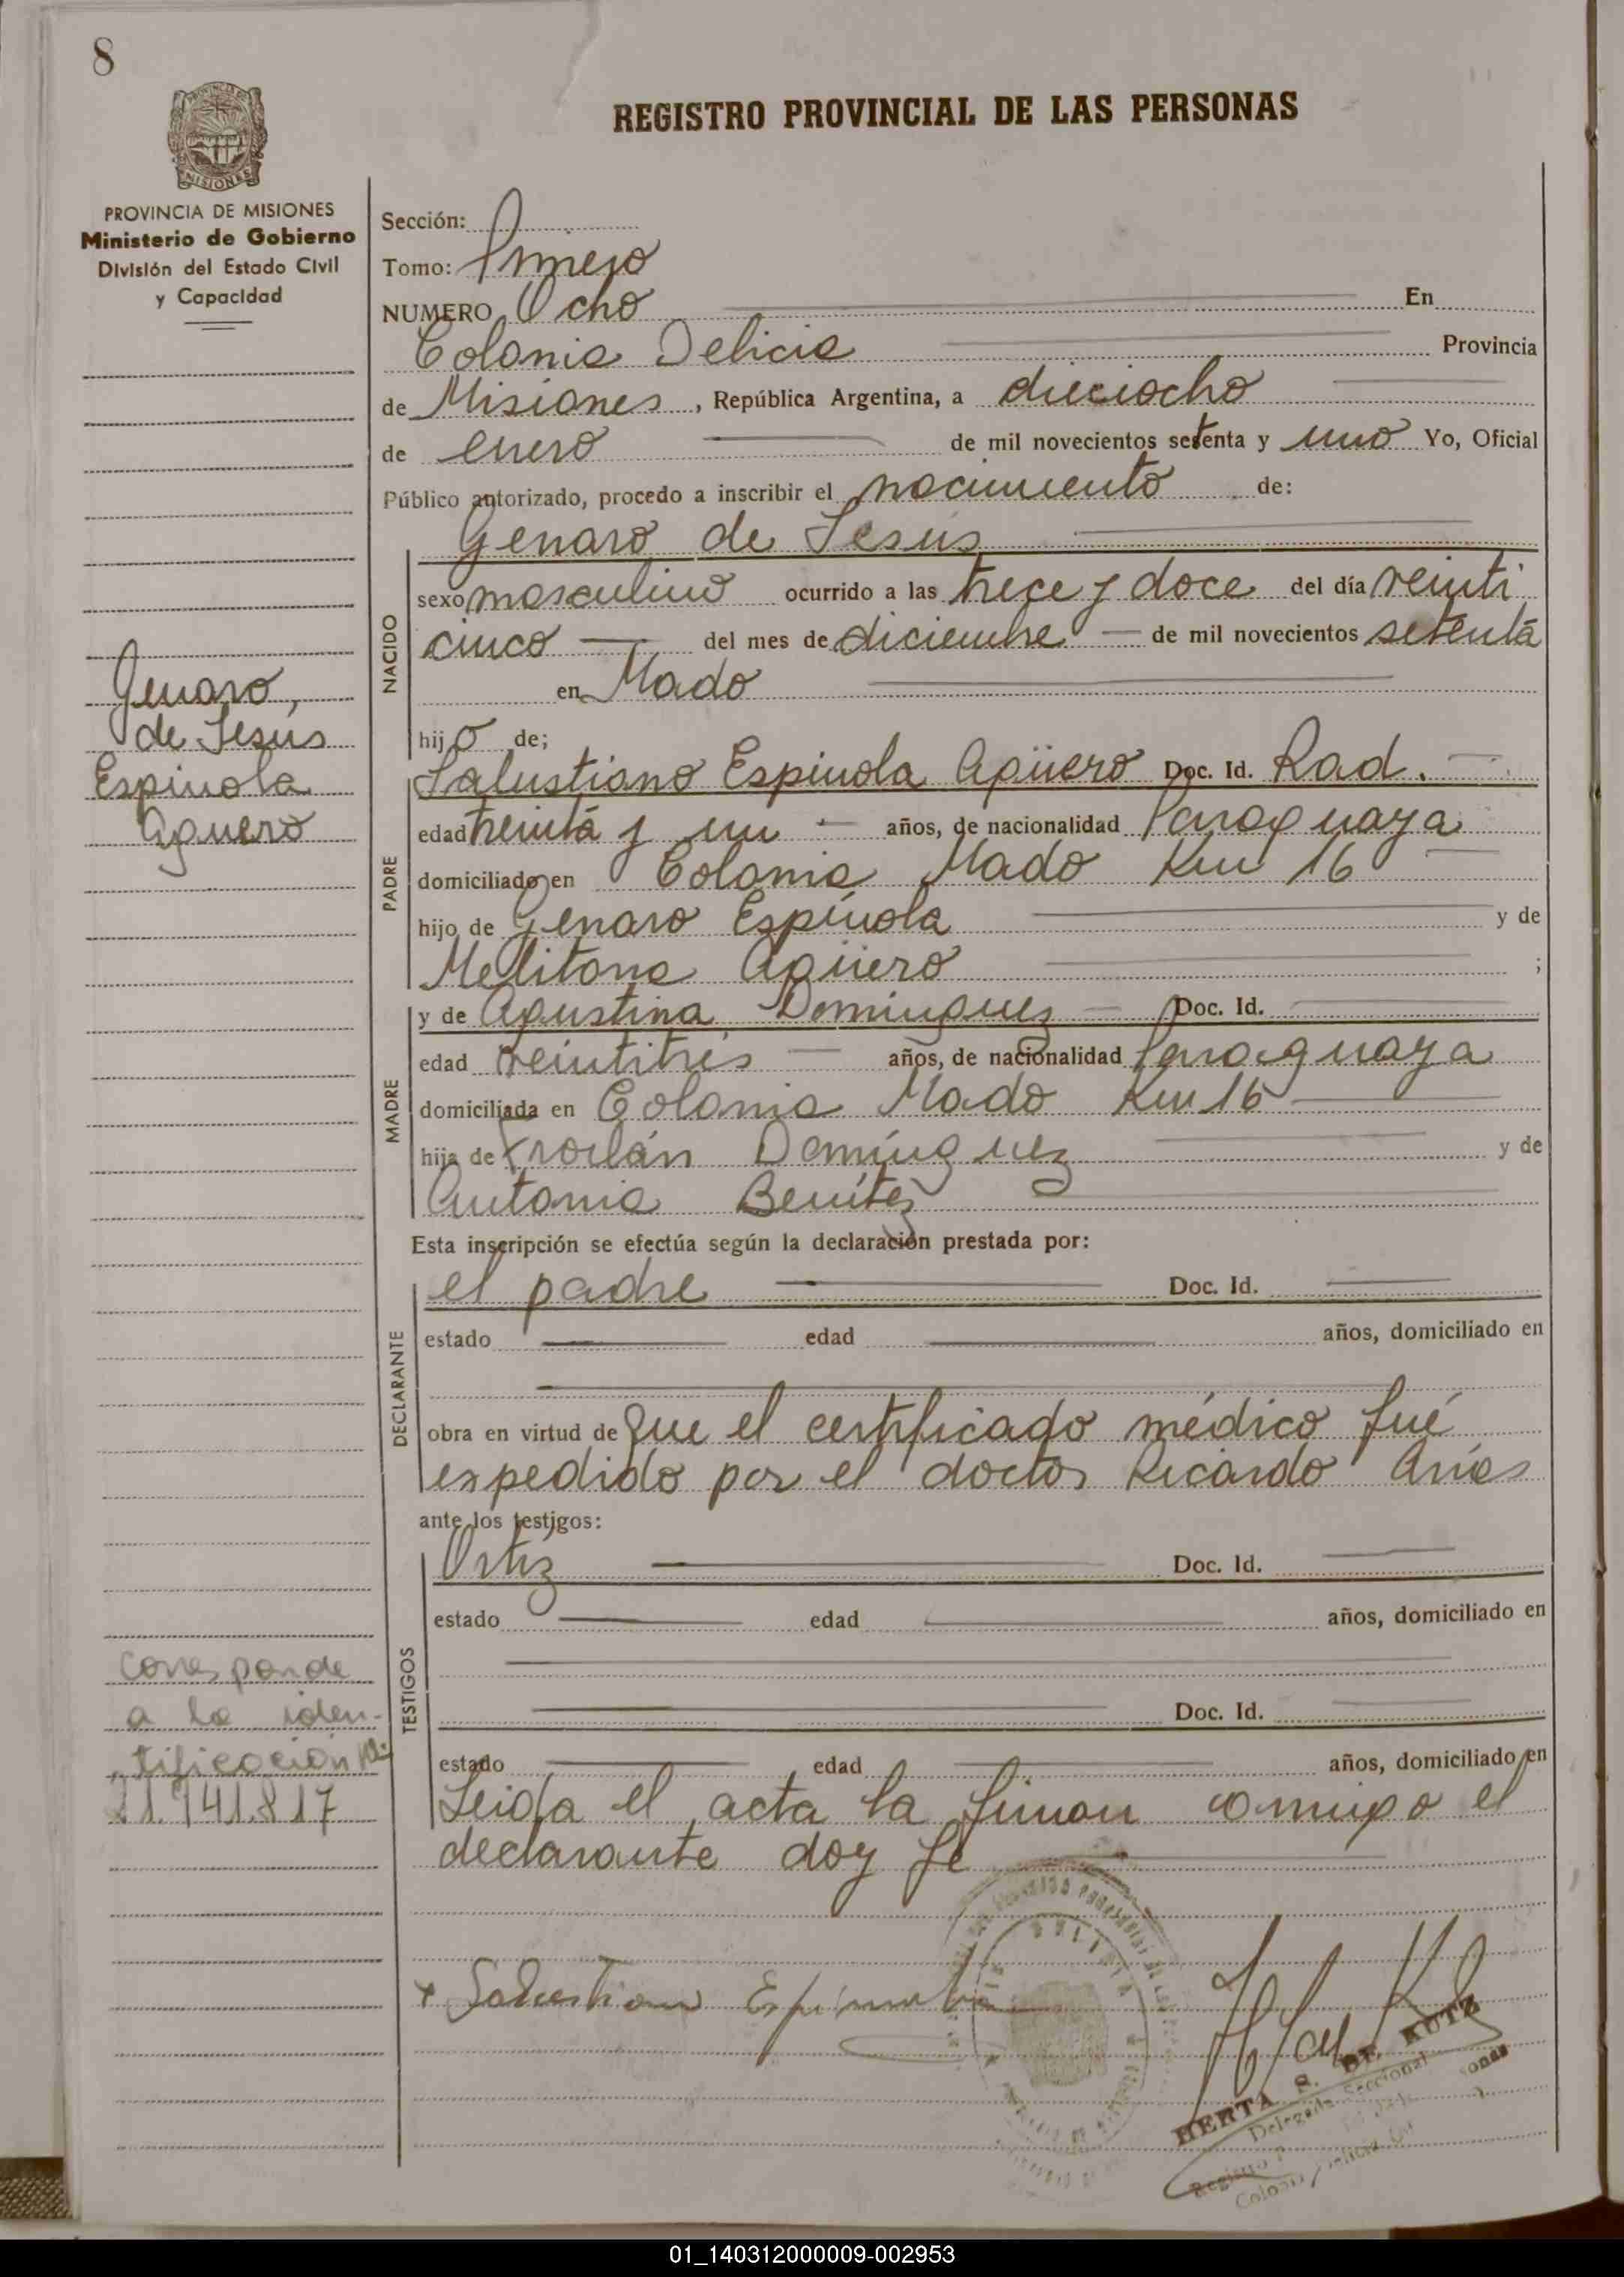 8
REGISTRO PROVINCIAL DE LAS PERSONAS
MISIONES
PROVINCIA DE MISIONES
Ministerio de Gobierno
División del Estado Civil
y Capacidad
Sección:
Tomo: Primero
NUMERO Ocho En
Colonia Delicia Provincia
de Misiones, República Argentina, a dieciocho
de enero de mil novecientos setenta y uno Yo, Oficial
Público autorizado, procedo a inscribir el nacimiento de:
Genaro de Jesús
NACIDO
sexo masculino ocurrido a las trece y doce del día veinti
cinco del mes de diciembre de mil novecientos setenta
en Mado
hijo de;
Genaro,
de Jesús
Espinola
Aguero
PADRE
Salustiano Espinola Agüero Doc. Id. Rad.
edad treinta y un años, de nacionalidad Paraguaya
domiciliado en Colonia Mado Km 16
hijo de Genaro Espínola y de
Melitona Agüero ;
MADRE
y de Agustina Dominguez Doc. Id.
edad veintitrés años, de nacionalidad Paraguaya
domiciliada en Colonia Mado Km 16
hija de Froilán Domínguez y de
Antonia Benítez
Esta inscripción se efectúa según la declaración prestada por:
DECLARANTE
el padre Doc. Id.
estado edad años, domiciliado en
obra en virtud de que el certificado médico fué
expedido por el doctor Ricardo Arias
ante los testigos:
TESTIGOS
Ortiz Doc. Id.
estado edad años, domiciliado en
Doc. Id.
estado edad años, domiciliado en
Leida el acta la firman conmigo el
declarante doy fe
Corresponde
a la iden-
tificación Nº
21.741.817
+ Salustiano Espinola
HERTA S. DE KUTZ
Delegada Seccional
01_140312000009-002953